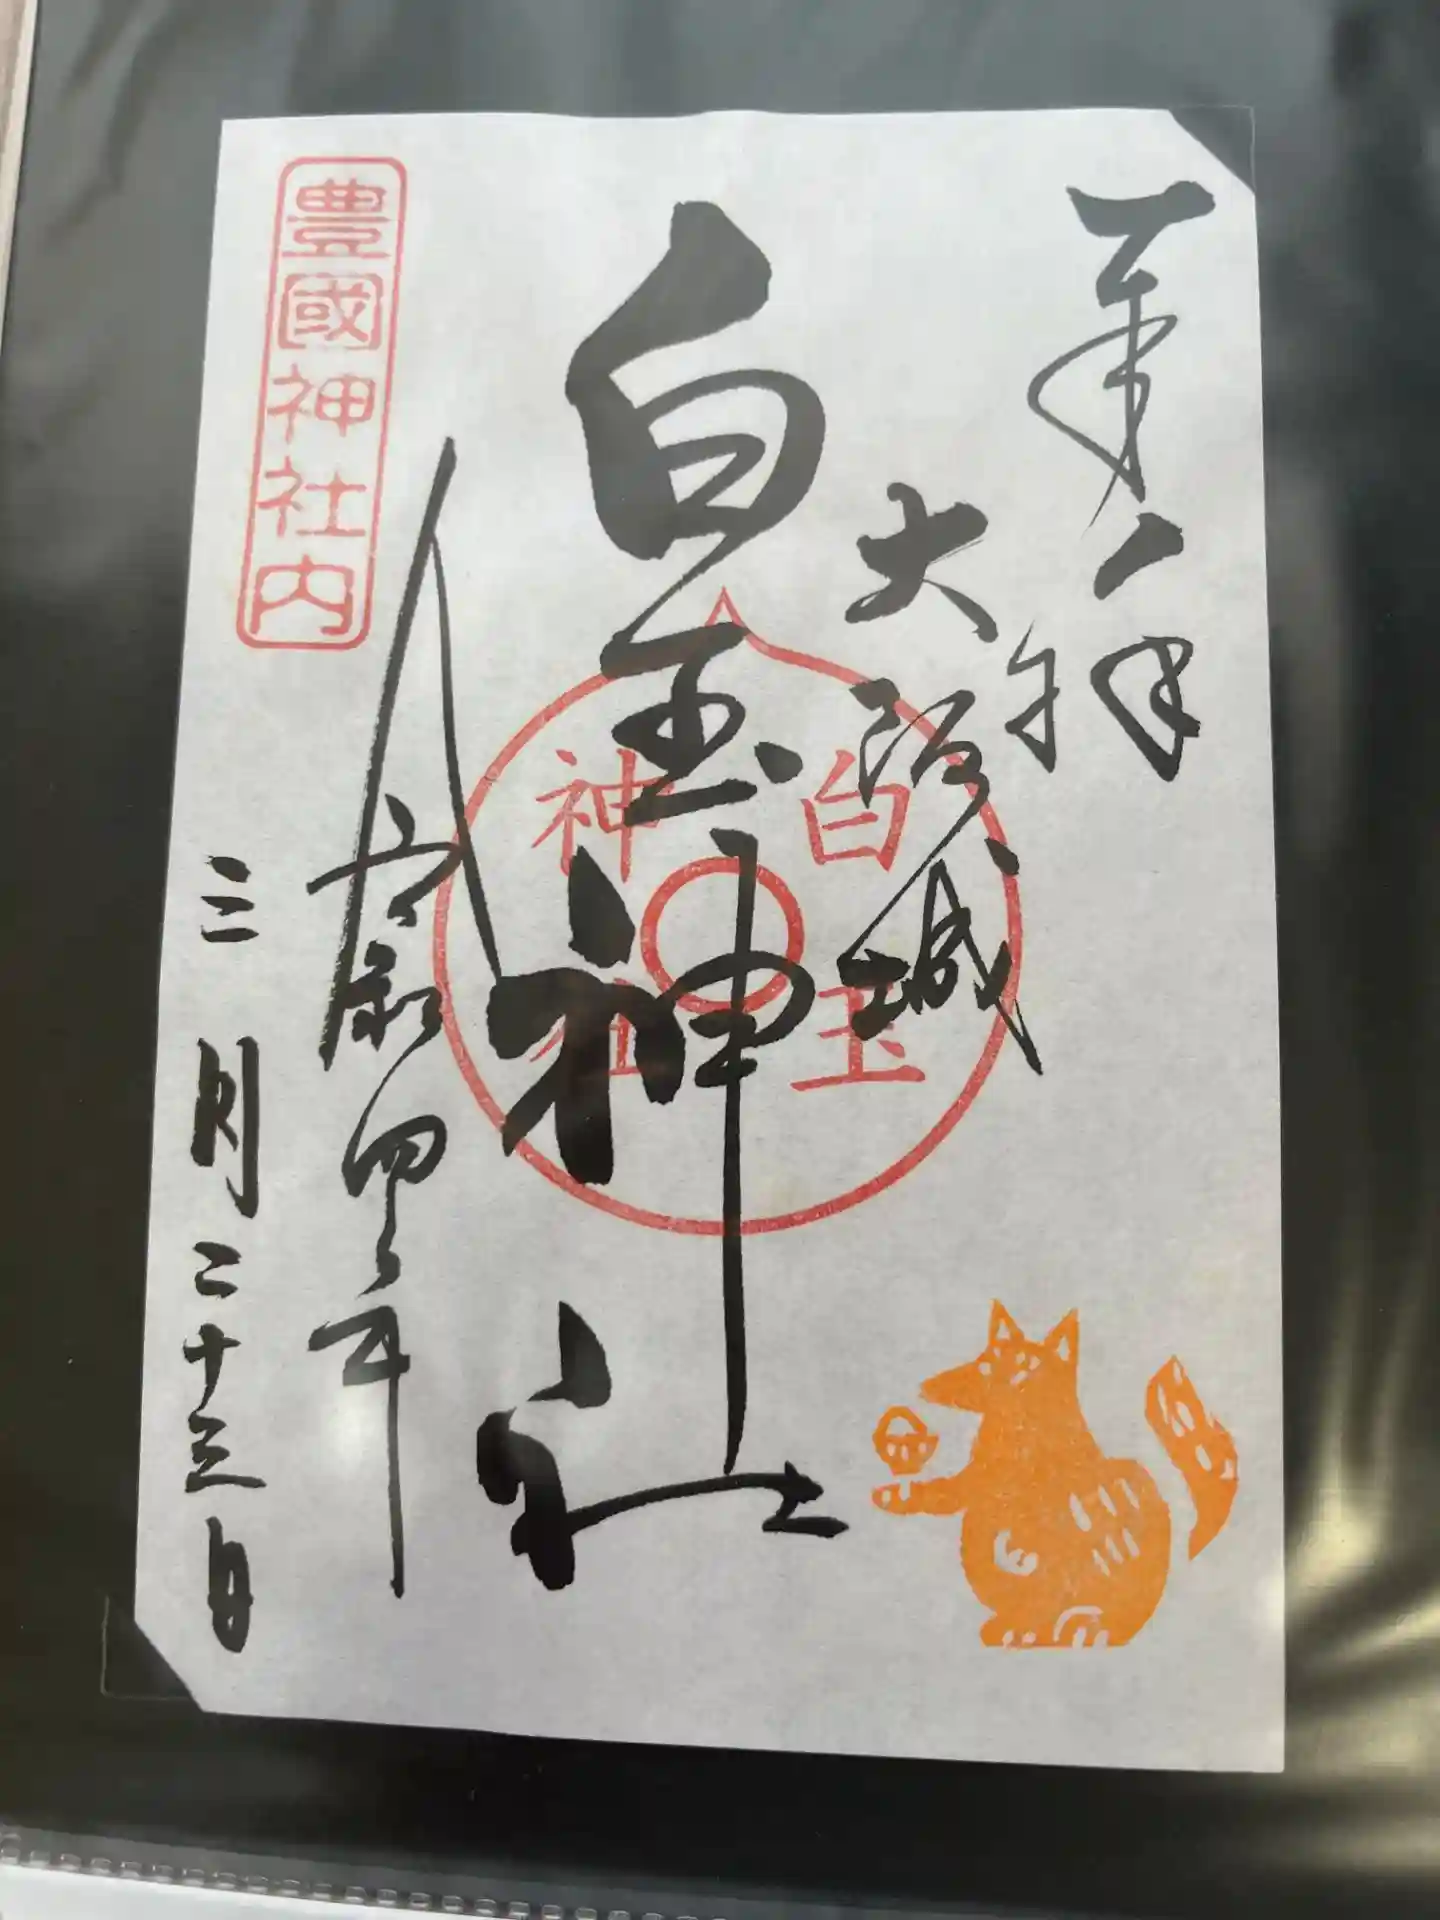 奉拝
大阪城
白玉神社
白玉
神社
令和四年
三月二十三日
豊國神社内